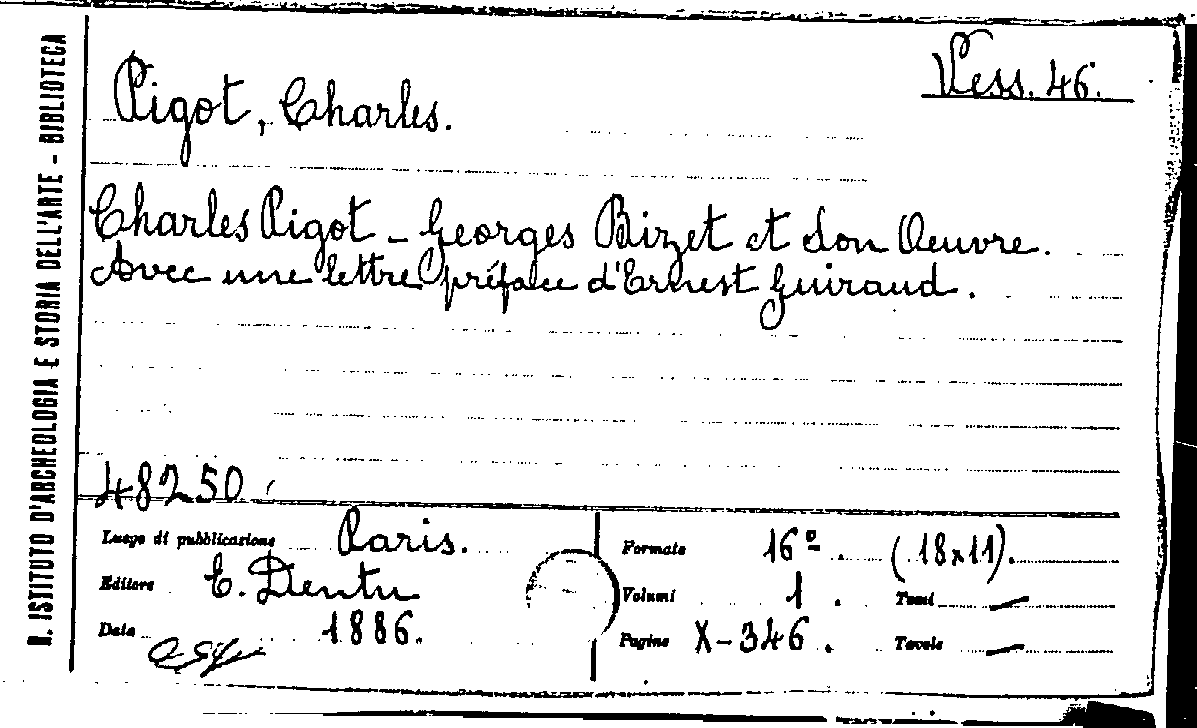 R. ISTITUTO D'ARCHEOLOGIA E STORIA DELL'ARTE - BIBLIOTECA
Vess. 46.
Pigot, Charles.
Charles Pigot - Georges Bizet et Son Oeuvre.
Avec une lettre préface d'Ernest Guiraud.
48250
Luogo di pubblicazione Paris.
Editore E. Dentu
Data 1886.
Formato 16º. (18x11).
Volumi 1. Tomi —
Pagine X-346. Tavole —